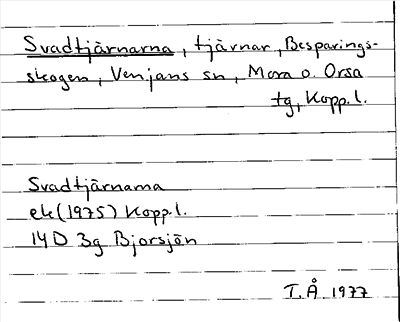 Svadtjärnarna, tjärnar, Besparings-
skogen, Venjans sn, Mora o. Orsa
tg, Kopp.l.
Svadtjärnarna
ek (1975) Kopp.l.
14D 3g Bjorsjön
T.Å 1977